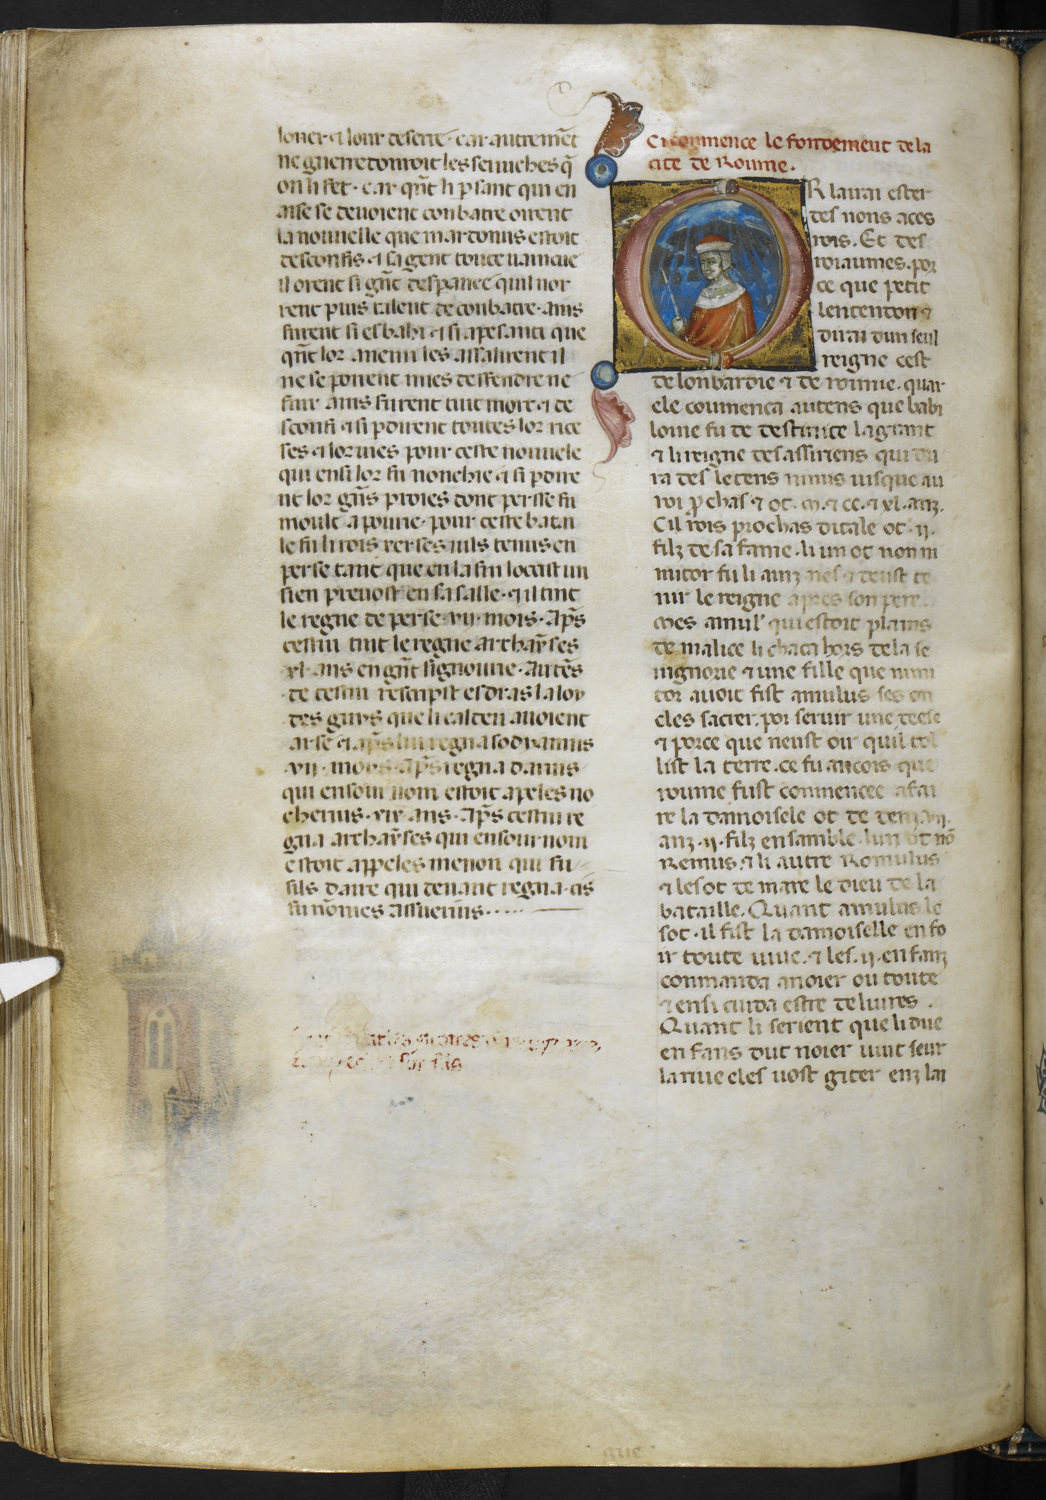 loner ⁊ lour deserte · car autremēt
ne guerredonroit les seruiches q̄
on li fet · car qn̄t li ꝑsant qui en
aise se deuoient conbatre oirent
la nouuelle que mardonus estoit
desconfis ⁊ sa gent toute
il orent si gn̄t desperance quil nor
rent puis talent de conbatre · ains
furent si esbahi ⁊ si apesanti que
qn̄t lor anemi les assalirent il
ne se porent mies deffendre ne
fuir ains furent tuit mort ⁊ de
sconfi ⁊ si ꝑdirent toutes lor rice
ses ⁊ lor vies pour ceste nouuele
qui ensi lor fu nonchie ⁊ si ꝑdire
nt lor gn̄s proies dont persse fu
moult apourie · pour ceste batai
le fu li rois xerses uils tenus en
perse tant que en la fin locist un
sien preuost en sa salle · ⁊ il tint
le regne de perse · vij · mois · Ap̄s
cestui tint le regne archaẏses
xl · ans en gn̄t signourie · Au tēs
de cestui rescripst esdras la loy
des que li caldeu auoient
arse ⁊ ap̄s lui regna sodramus
· vij · moys · ap̄s regna darius
qui ensour nom estoit apeles no
cherius · xix · ans · Ap̄s cestui re
gna archaẏses qui ensour nom
estoit appeles menon qui fu
fils daire qui deuant regna · cis
fu nōmes assuerus ·····
Ci coumence le fondement de la
cite de Roume ·
OR laurai ester
des nons a ces
rois. Et des
roiaumes · por
ce que petit
lentendon ⁊
dirai dun seul
reigne cest
de lonbardie ⁊ de roume · quar
ele coumenca au tens que babi
loine fu de destruite la grant
⁊ li reigne des assiriens qui du
ra des le tens ninus iusque au
roi ꝓchas ⁊ ot · m · ⁊ cc · ⁊ xl · anz.
Cil rois prochas ditale ot · ij ·
filz de sa fame · li un ot non nu
mitor fu li ainz nes ⁊ deust te
nir le reigne apres son pere.
Mes amul' qui estoit plains
de malice li chaca hors de la se
ingnorie ⁊ une fille que numi
tor auoit fist amulus ses on
cles sacrer · por seruir une deese
⁊ porce que neust oir quil tol
list la terre · ce fu ancois que
roume fust conmencee a fai
re la damoisele ot de
anz · ij · filz ensamble · lun ot nō
Remus · ⁊ li autre Romulus
⁊ les ot de mare le dieu de la
bataille. Quant amulus le
sot · il fist la damoiselle enfo
ir toute uiue · ⁊ les · ij · enfanz
conmanda a noier ou toute
⁊ ensi cuida estre deliures .
Quant li serient que li due
enfans dut noier uint seur
la riue eles uost giter enz lai
que